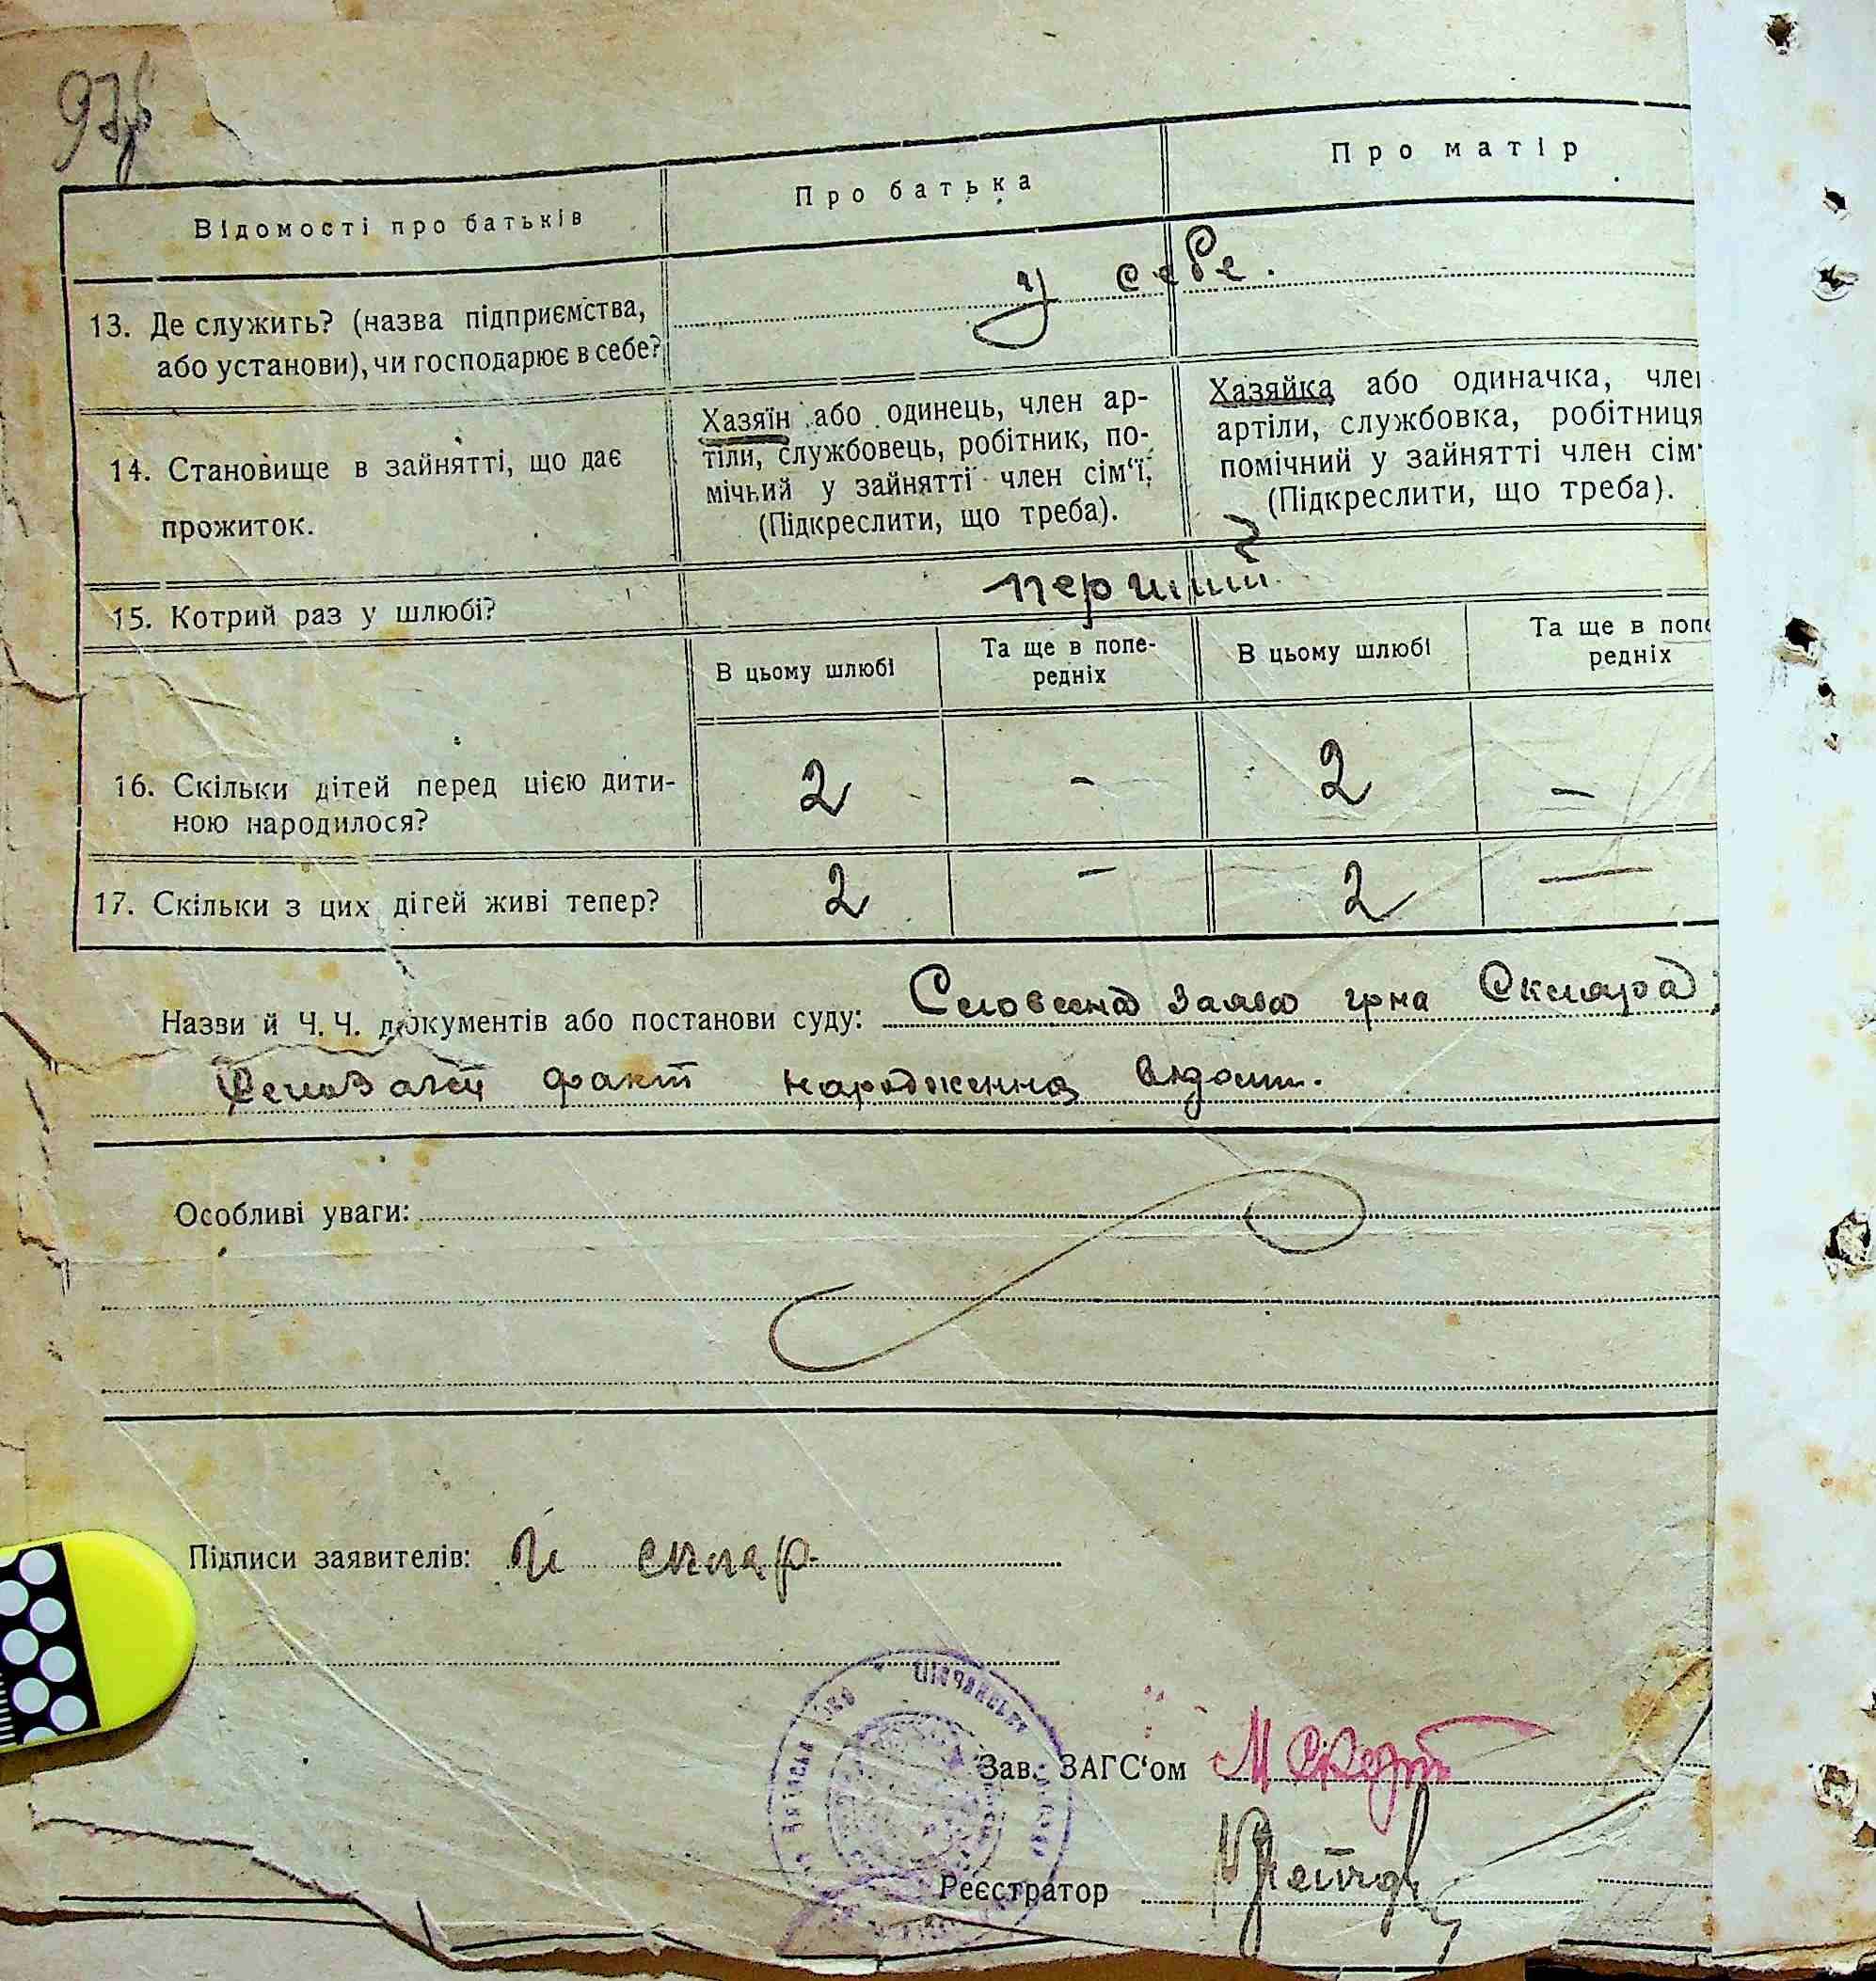 Відомості про батьків
Про батька
Про матір
13. Де служить? (назва підприємства,
або установи), чи господарює в себе?
у себе.
14. Становище в зайнятті, що дає
прожиток.
Хазяїн або одинець, член ар-
тіли, службовець, робітник, по-
мічний у зайнятті член сім‘ї.
(Підкреслити, що треба).
Хазяйка або одиначка, член
артіли, службовка, робітниця
помічний у зайнятті член сім‘
(Підкреслити, що треба).
15. Котрий раз у шлюбі?
перший
В цьому шлюбі
Та ще в попе-
редніх
В цьому шлюбі
Та ще в попе
редніх
16. Скільки дітей перед цією дити-
ною народилося?
2 - 2 -
17. Скільки з цих дітей живі тепер?
2 - 2 —
Назви й Ч. Ч. документів або постанови суду: Словесна заява гр-на Скляра
факт народження
Особливі уваги:
Підписи заявителів: скляр
Зав. ЗАГС‘ом
Реєстратор